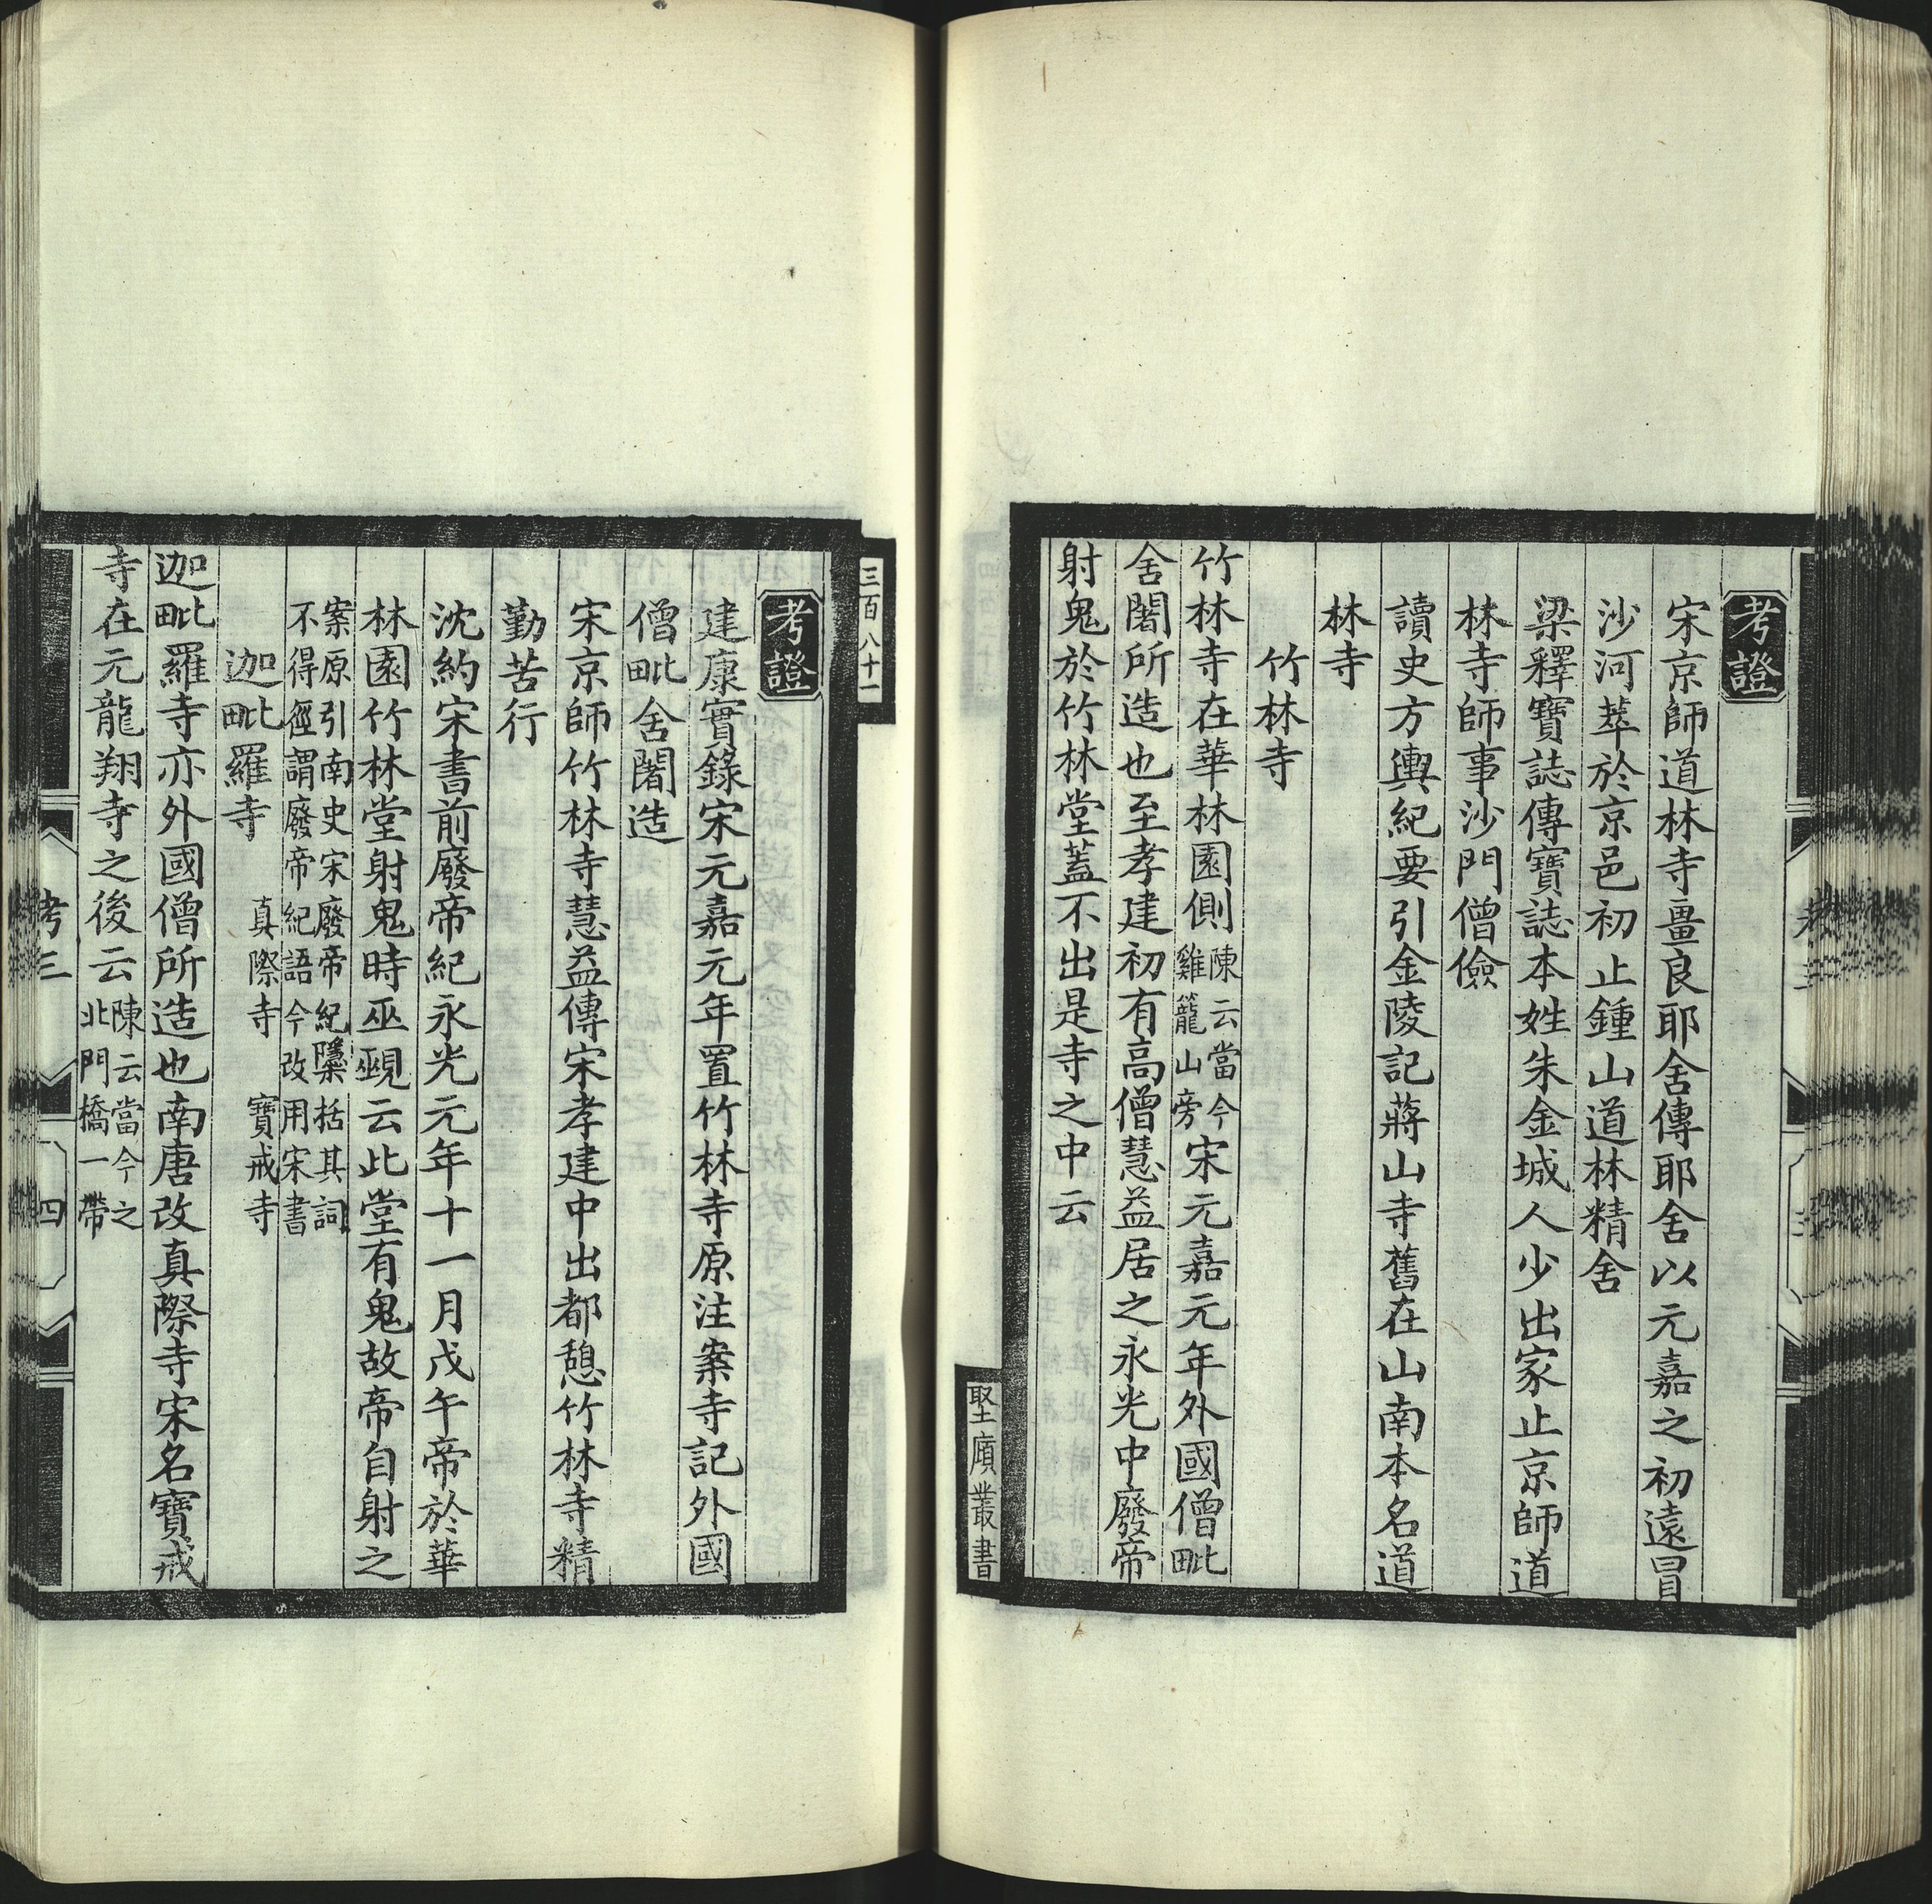 考證
宋京師道林寺畺良耶舍傳耶舍以元嘉之初遠冐
沙河萃於京邑初止鍾山道林精舍
梁釋寶誌傳寶誌本姓朱金城人少出家止京師道
林寺師事沙門僧儉
讀史方輿紀要引金陵記蔣山寺舊在山南本名道
林寺
竹林寺
竹林寺在華林園側陳云當今雞籠山旁宋元嘉元年外國僧毗
舍闍所造也至孝建初有高僧慧益居之永光中廢帝
射鬼於竹林堂蓋不出是寺之中云
堅廎叢書
三百八十一
考證
建康實錄宋元嘉元年置竹林寺原注案寺記外國
僧毗舍闍造
宋京師竹林寺慧益傳宋孝建中出都憩竹林寺精
勤苦行
沈約宋書前廢帝紀永光元年十一月戊午帝於華
林園竹林堂射鬼時巫覡云此堂有鬼故帝自射之
案原引南史宋廢帝紀隱括其詞
不得徑謂廢帝紀語今改用宋書
迦毗羅寺 真際寺 寶戒寺
迦毗羅寺亦外國僧所造也南唐改真際寺宋名寶戒
寺在元龍翔寺之後云陳云當今之北門橋一帶
考三
四